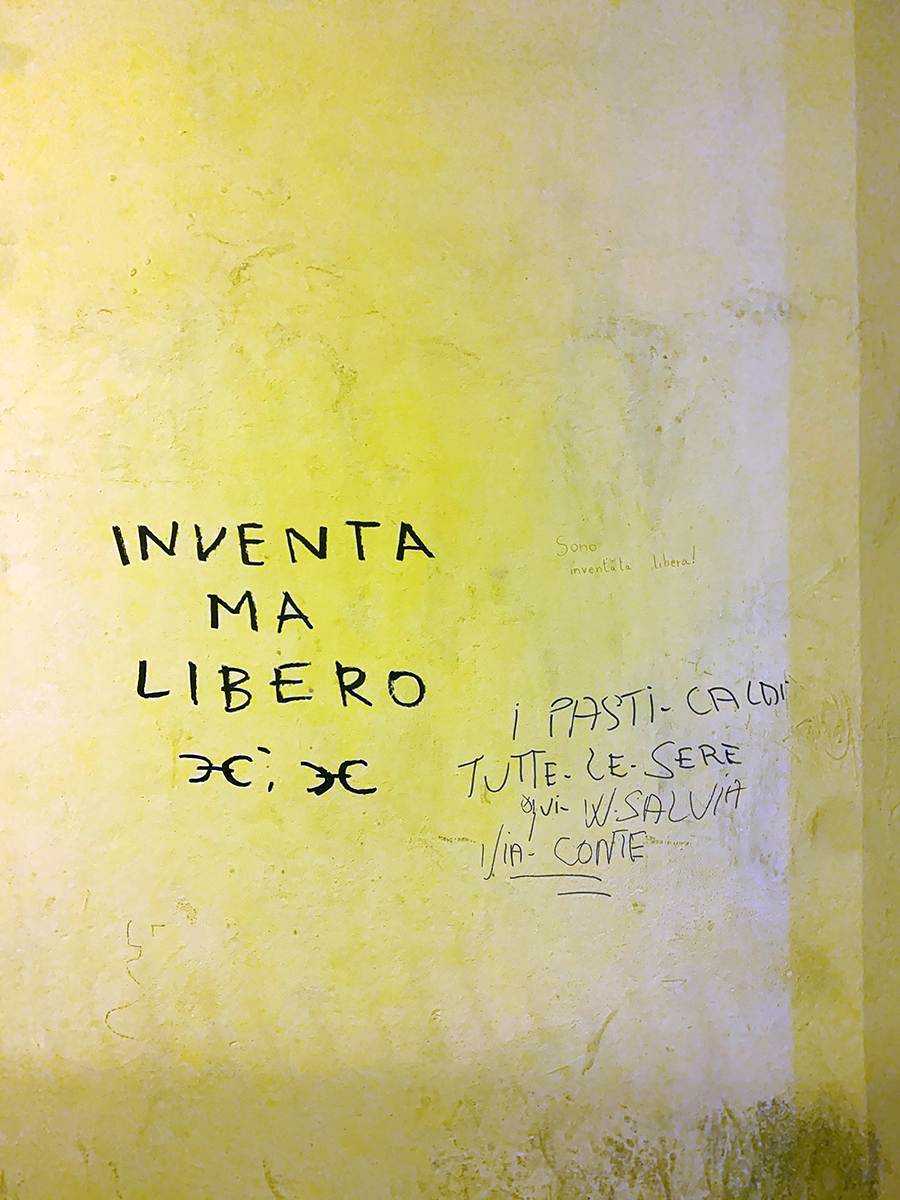 INVENTA
MA
LIBERO
Sono
inventata libera!
i PASTi - CALDi
TUTTE - LE - SERE
qui - W. SALVIA
CONTE